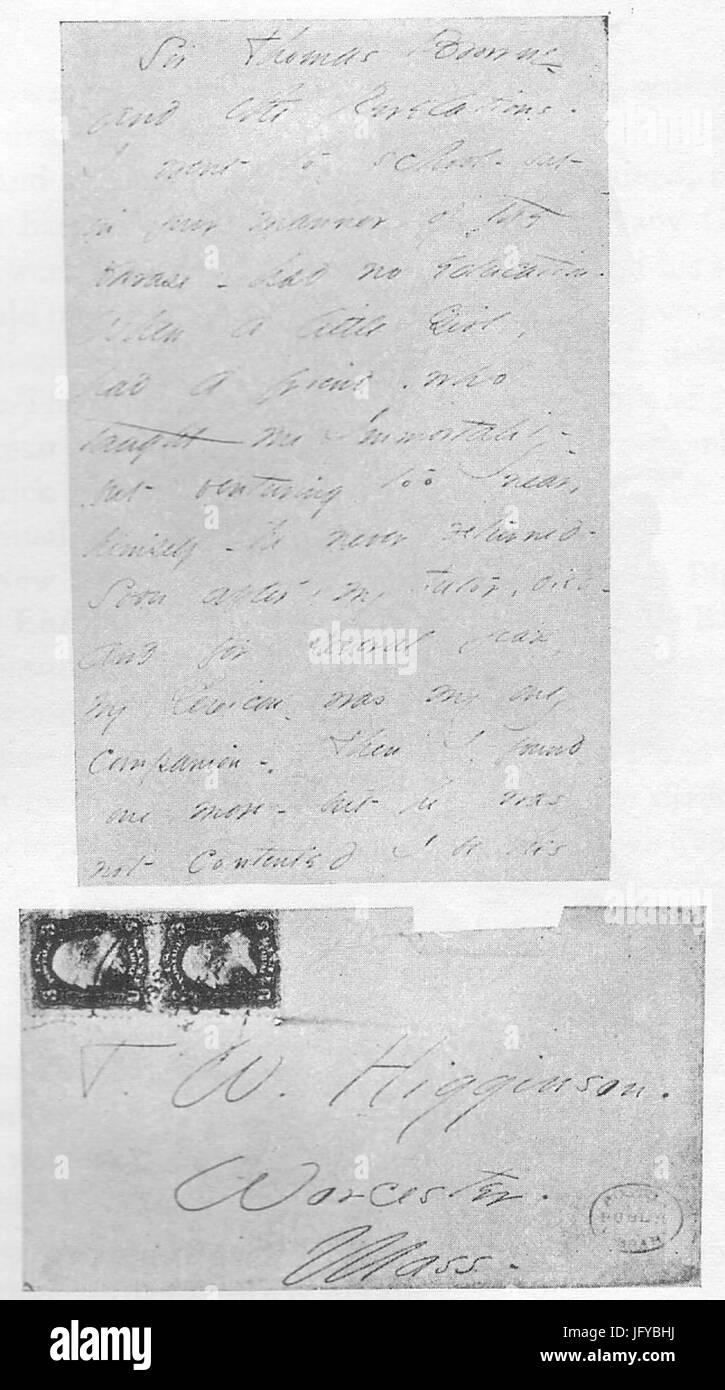 Sir Thomas Browne
and the Revelations.
I went to school - but
in your manner of the
phrase - had no education.
When a little Girl,
had a friend, who
taught me Immortality -
but venturing too near,
himself - he never returned -
Soon after, my Tutor, died -
and for several years,
my Lexicon - was my only
companion - Then I found
one more - but he was
not contented I be his
T. W. Higginson.
Worcester.
Mass.
PUBLIC
alamy
Image ID: JFYBHJ
www.alamy.com